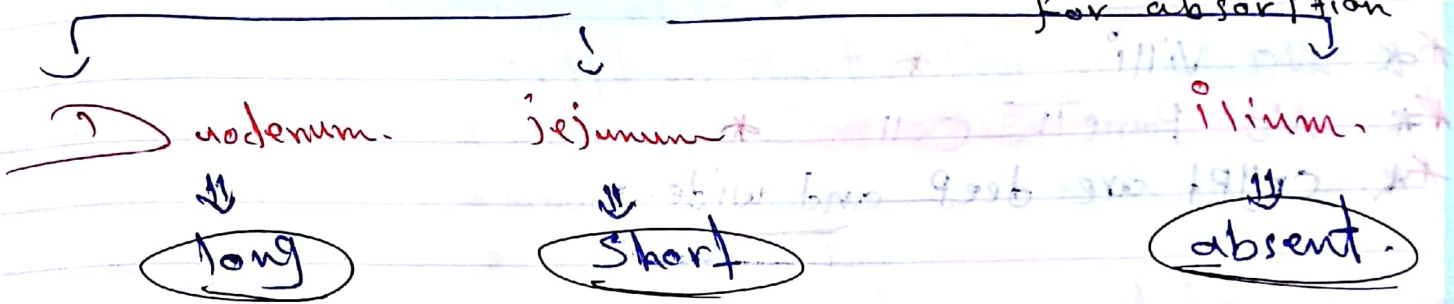 For absorption
Duodenum. jejunum ilium.
long Short absent.